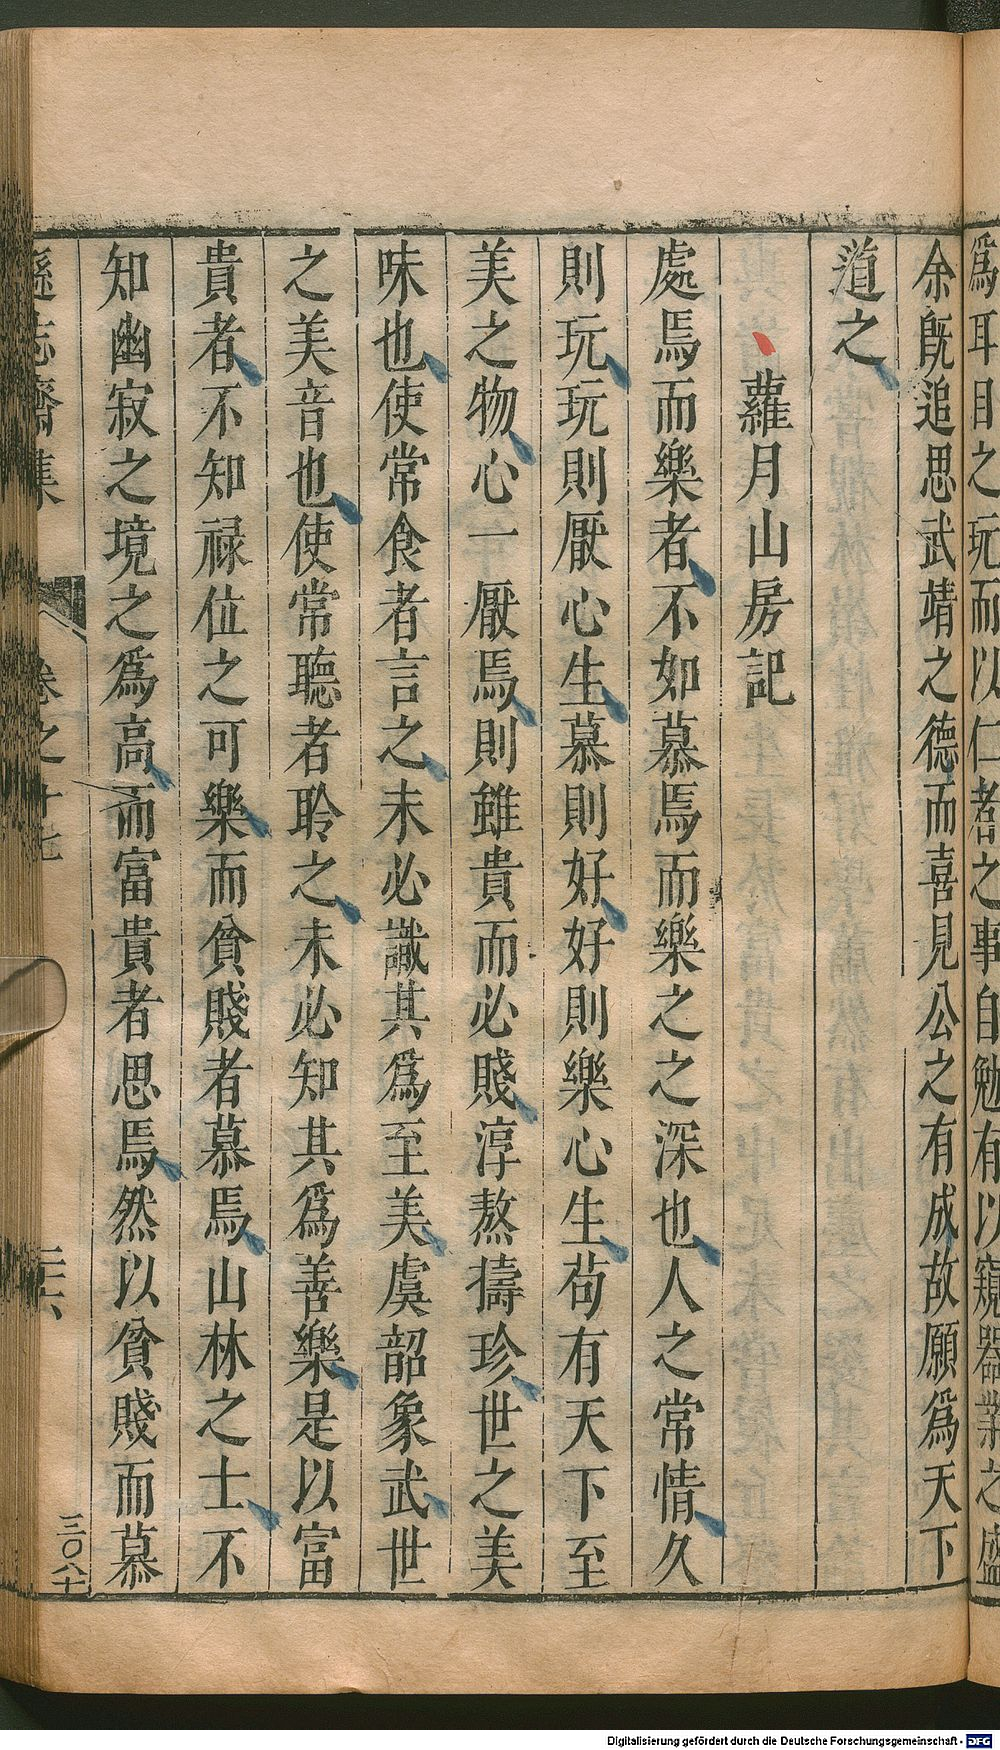 爲耳目之玩而以仁者之事自勉有以窺器業之盛
余既追思武靖之德而喜見公之有成故願爲天下
道之
蘿月山房記
處焉而樂者不如慕焉而樂之之深也人之常情久
則玩玩則厭心生慕則好好則樂心生苟有天下至
美之物心一厭焉則雖貴而必賤淳熬擣珍世之美
味也使常食者言之未必識其爲至美虞韶象武世
之美音也使常聽者聆之未必知其爲善樂是以富
貴者不知祿位之可樂而貧賤者慕焉山林之士不
知幽寂之境之爲高而富貴者思焉然以貧賤而慕
遜志齋集 卷之十七 二十六
三〇八十
Digitalisierung gefördert durch die Deutsche Forschungsgemeinschaft - DFG